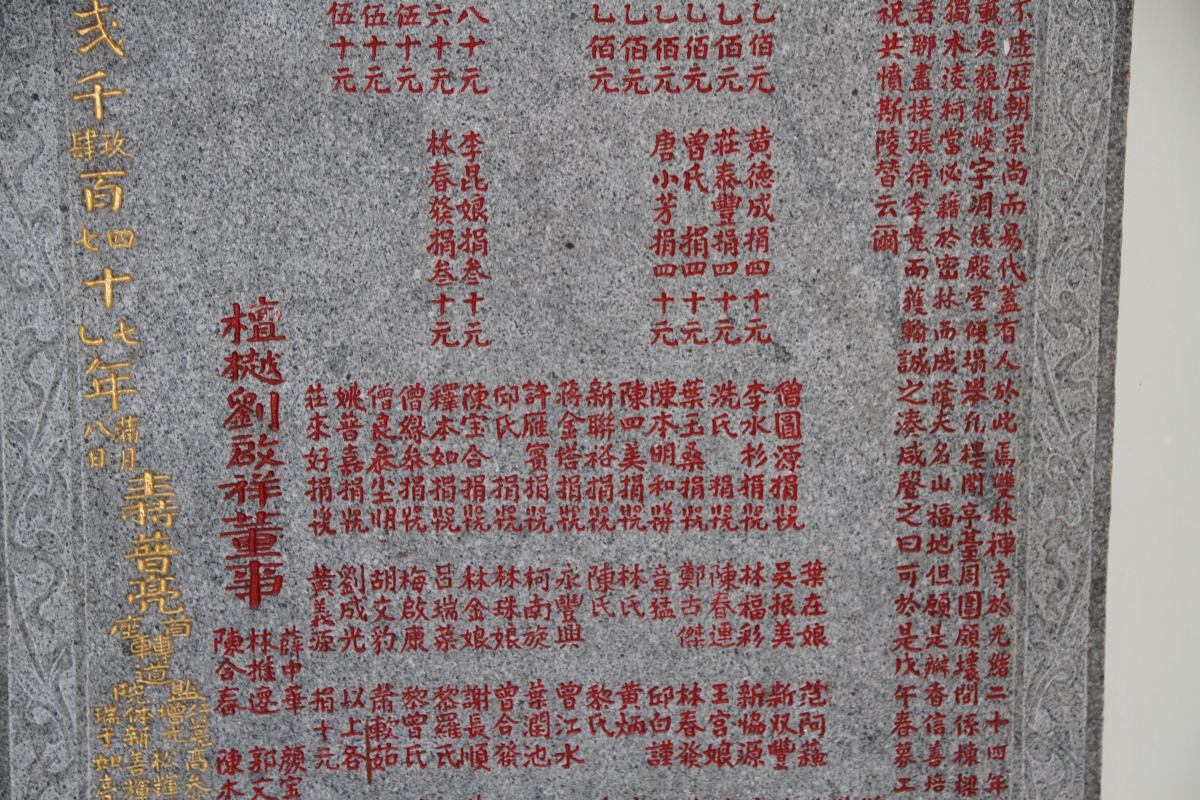 不虛歷朝崇尚而易代蓋有人於此焉雙林禪寺於光緒二十四年
載矣巍視峻宇凋殘殿堂傾塌舉凡樓閣亭臺周圍頹壞閣係棟樑
獨木凌柯當必藉於密林而成蔭夫名山福地但願是辦香信善培
者聯盡接張侍李竟而蘿輸誠之湊咸聲之曰可於是戊午春募工
祝共憤斯陵替云爾
葉在娘 范阿
乙佰元 黃德成捐四十元 僧圓源捐 吳振美 新双豐
乙佰元 莊泰豐捐四十元 李水杉捐 林福彩 新協源
乙佰元 曾氏捐四十元 洗氏捐 陳春連 王宮娘
乙佰元 唐小芳捐四十元 葉玉桑捐 鄭古傑 林春發
乙佰元 陳本明和 章猛 邱白謹
乙佰元 陳四美捐 林氏 黃炳
新聯裕捐 陳氏 黎氏
蔣金塔捐 永豐興 曾江水
許雁賓捐 柯南旋 葉潤池
邱氏捐 林珠娘 曾合發
八十元 李昆娘捐叁十元 陳宝合捐 林金娘 謝長順
六十元 林春發捐叁十元 釋本如捐 呂瑞葉 黎羅氏
伍十元 僧綠叅捐 梅啟康 黎曾氏
伍十元 僧良叅 胡艾豹 蕭軟茹
伍十元 姚普嘉捐 劉成光 以上各
莊來好捐 黃義源 捐十元
薛中華 顏宝
檀樾劉啟祥董事 林推遷 郭文
陳合春 陳木
弍千玖肆百四七十七乙年蒲月八日
主持普亮首座轉道監院